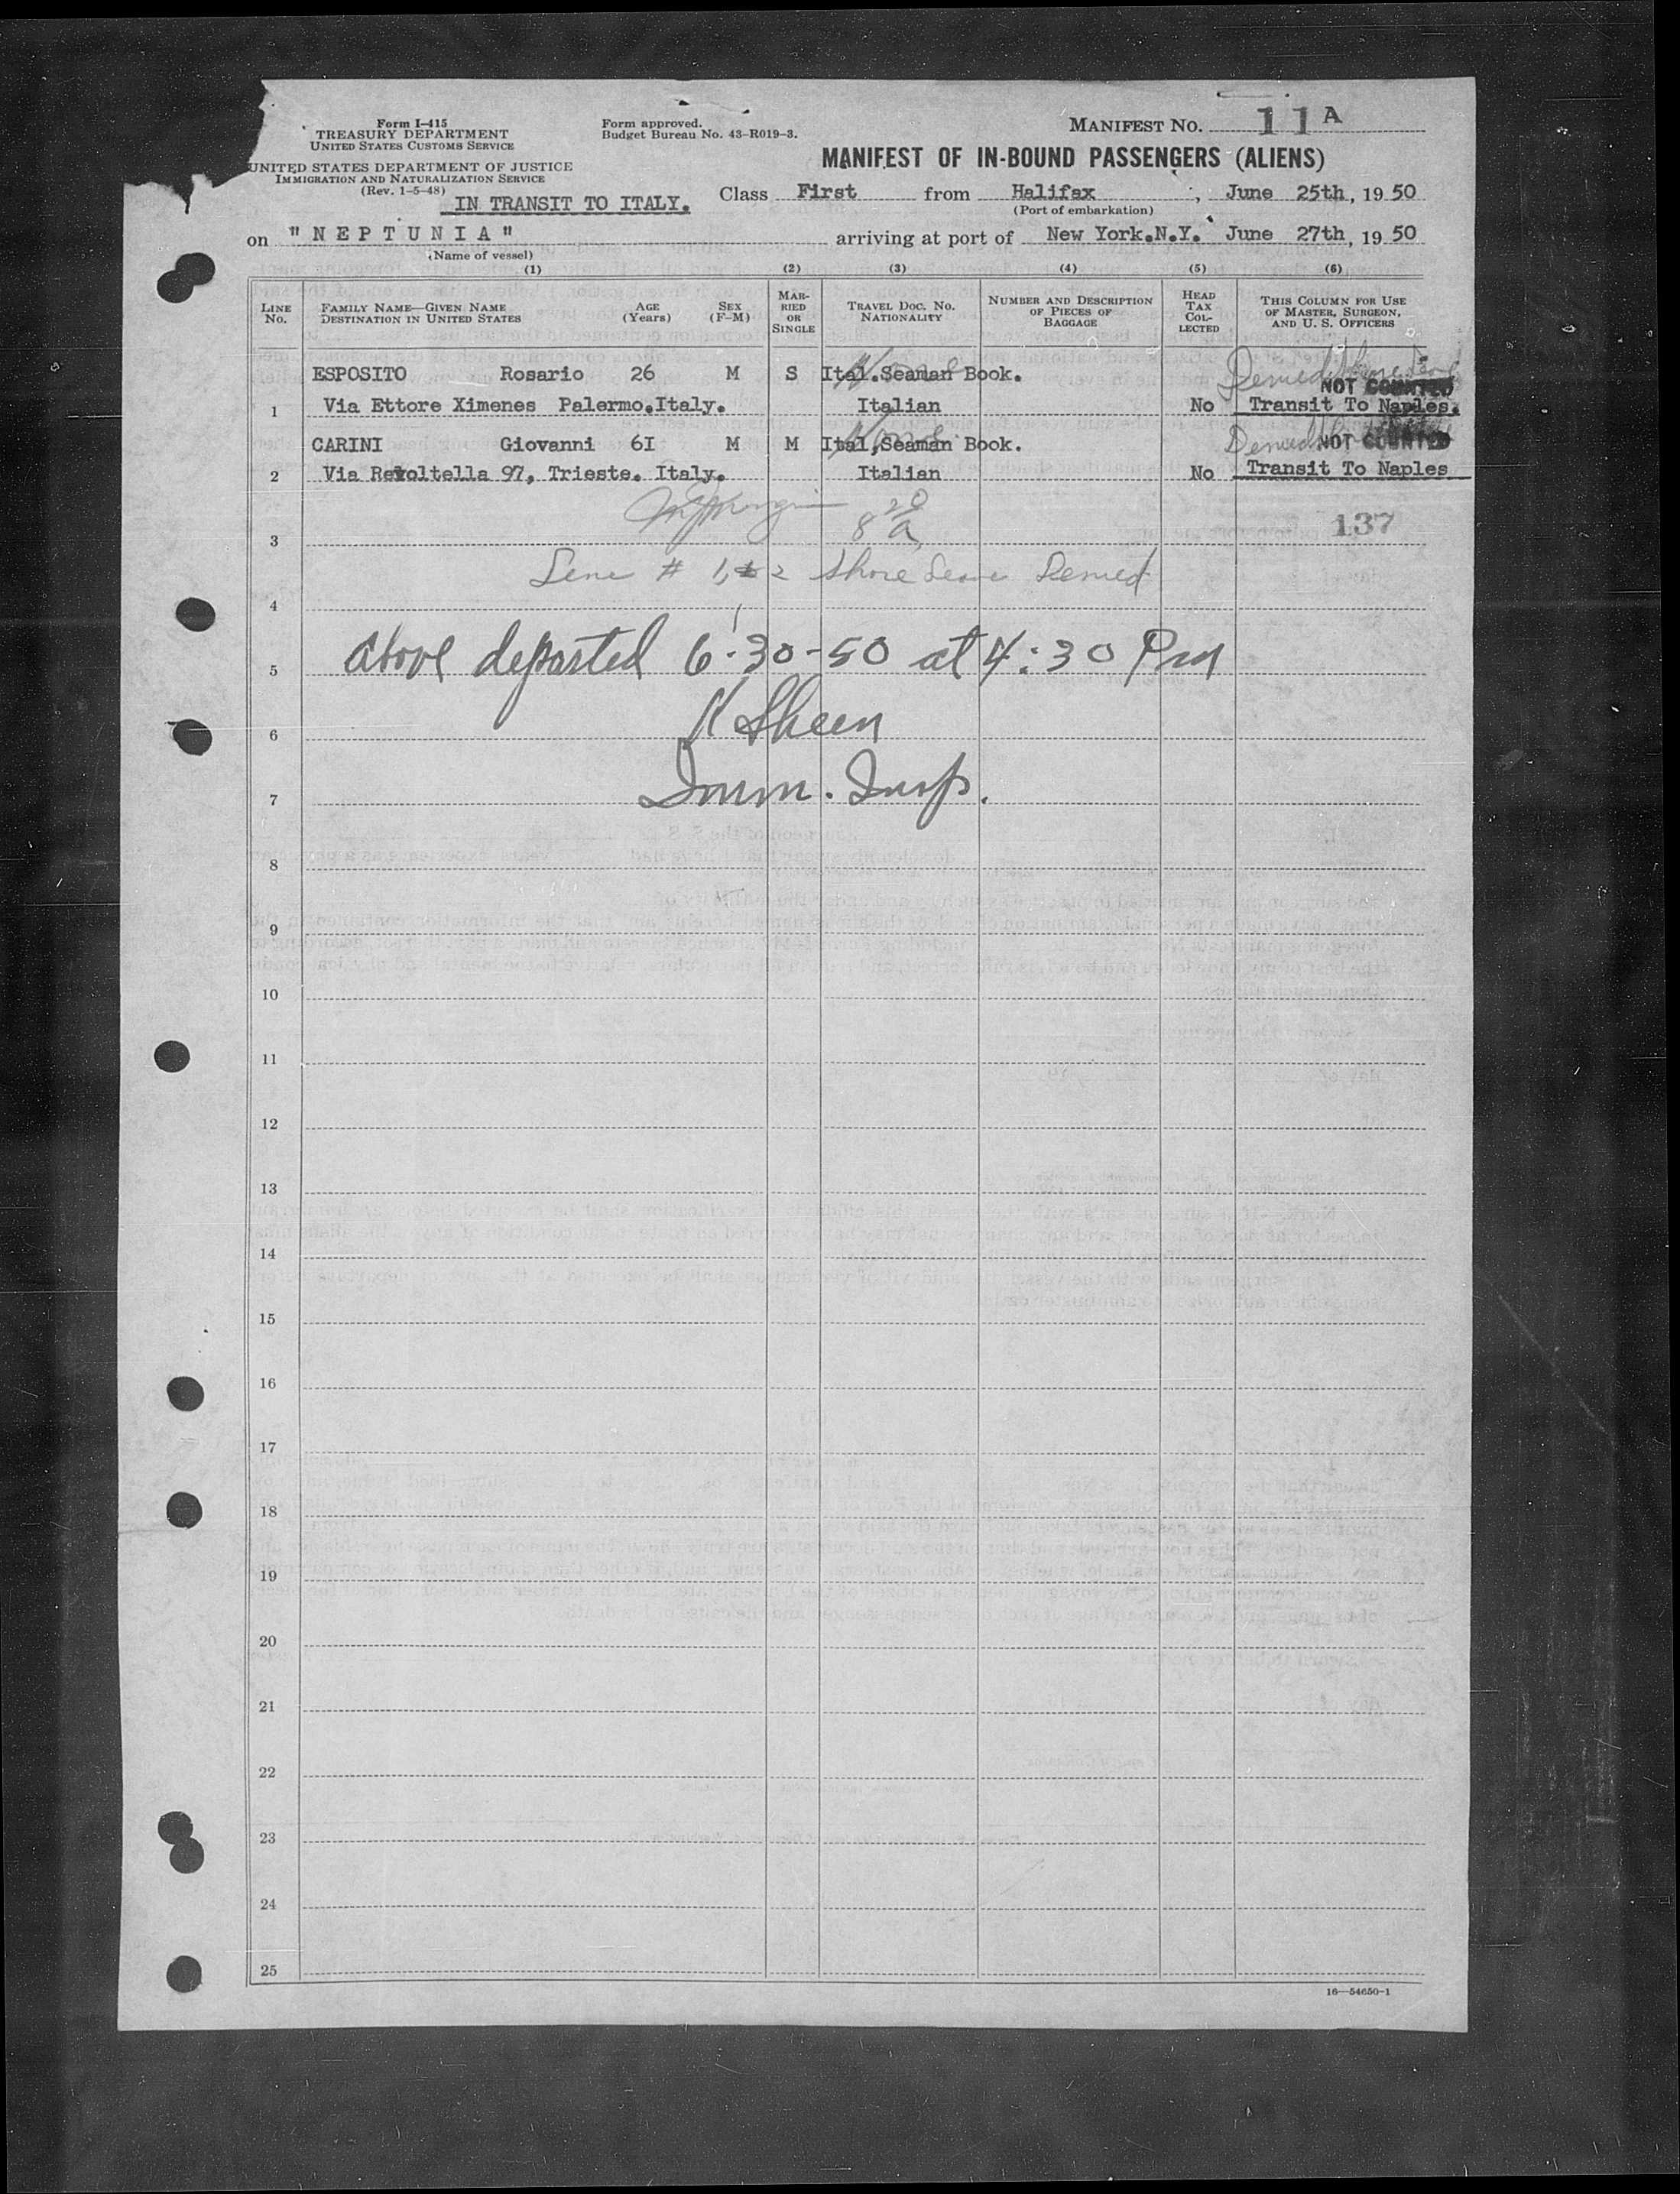 Form I-415
TREASURY DEPARTMENT
UNITED STATES CUSTOMS SERVICE
UNITED STATES DEPARTMENT OF JUSTICE
IMMIGRATION AND NATURALIZATION SERVICE
(Rev. 1-5-48)
Form approved.
Budget Bureau No. 43-R019-3.
MANIFEST NO. 11 A
MANIFEST OF IN-BOUND PASSENGERS (ALIENS)
IN TRANSIT TO ITALY.
Class First from Halifax, June 25th, 1950
(Port of embarkation)
on "NEPTUNIA" arriving at port of New York.N.Y. June 27th, 1950
(Name of vessel)
(1) (2) (3) (4) (5) (6)
LINE NO.
FAMILY NAME—GIVEN NAME
DESTINATION IN UNITED STATES
AGE (Years)
SEX (F-M)
MARRIED OR SINGLE
TRAVEL DOC. NO.
NATIONALITY
NUMBER AND DESCRIPTION OF PIECES OF BAGGAGE
HEAD TAX COLLECTED
THIS COLUMN FOR USE OF MASTER, SURGEON, AND U. S. OFFICERS
ESPOSITO Rosario 26 M S Ital.Seaman Book. None Denied Shore Leave NOT COUNTED
1 Via Ettore Ximenes Palermo.Italy. Italian No Transit To Naples.
CARINI Giovanni 6I M M Ital,Seaman Book. None Denied NOT COUNTED
2 Via Revoltella 97, Trieste. Italy. Italian No Transit To Naples
8 20 a
3 137
Line # 1, 2 Shore Leave Denied
4
5 above departed 6-30-50 at 4:30 Pm
6 K Sheen
7 Imm. Insp.
8
9
10
11
12
13
14
15
16
17
18
19
20
21
22
23
24
25
16—54650-1